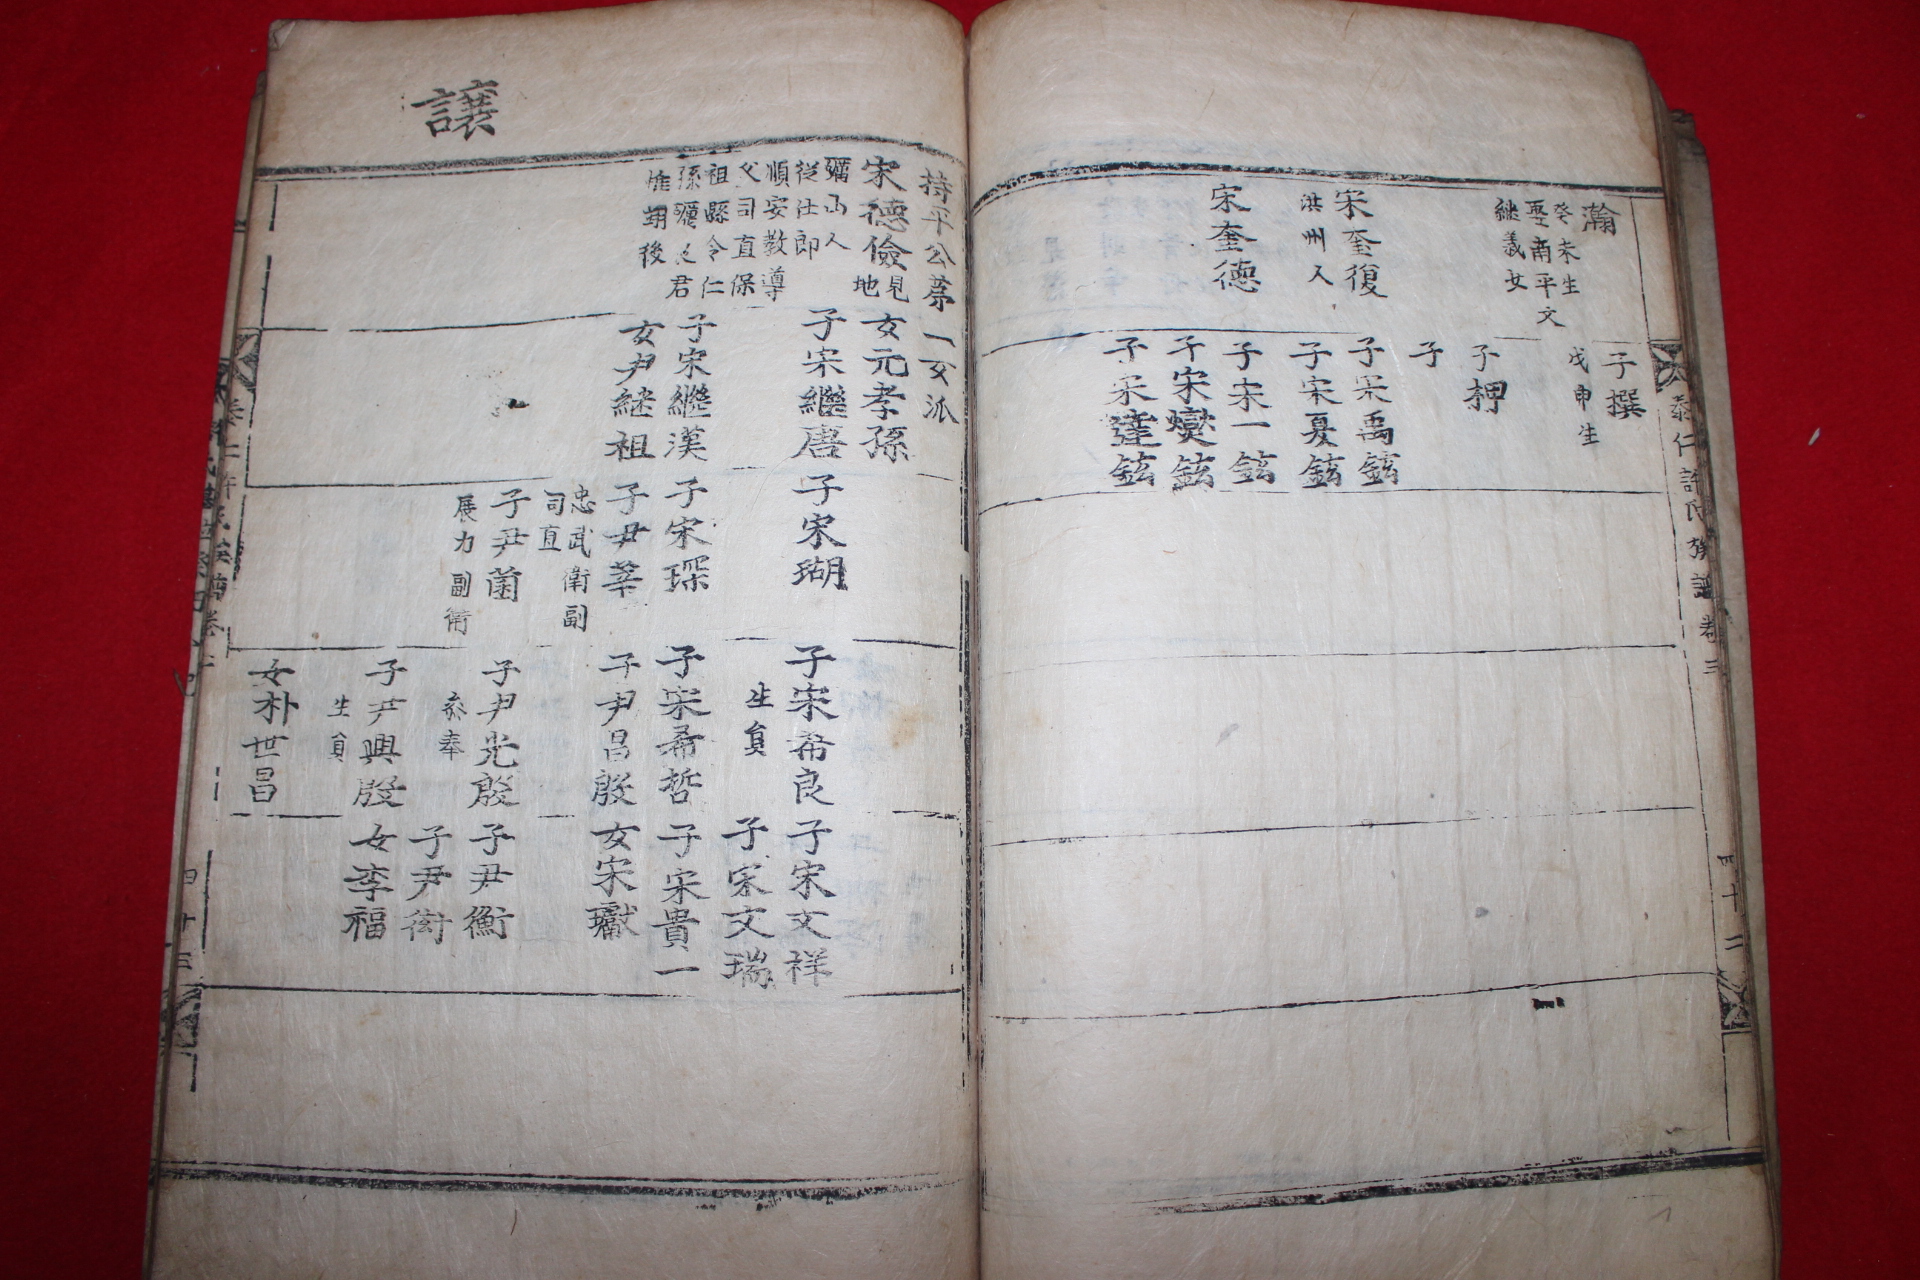 泰仁許氏族譜 卷三
四十二
瀚
癸未生
娶南平文
継義女
宋奎復
洪州人
宋奎德
子撰
戊申生
子押
子
子宋禹鉉
子宋夏鉉
子宋一鉉
子宋燮鉉
子宋達鉉
讓
持平公第一女派
宋德儉
見地
礪山人
從仕郎
順安教導
父司直保
祖縣令仁
孫礪良君
惟翊後
女元孝孫
子宋繼唐
子宋繼漢
女尹継祖
子宋瑚
子宋琛
子尹莘
忠武衛副
司直
子尹菌
展力副衛
子宋希良
生員
子宋希哲
子尹昌殷
子尹光殷
叅奉
子尹興殷
生員
女朴世昌
子宋文祥
子宋文瑞
子宋貴一
女宋瓛
子尹衡
子尹衎
女李福
四十三